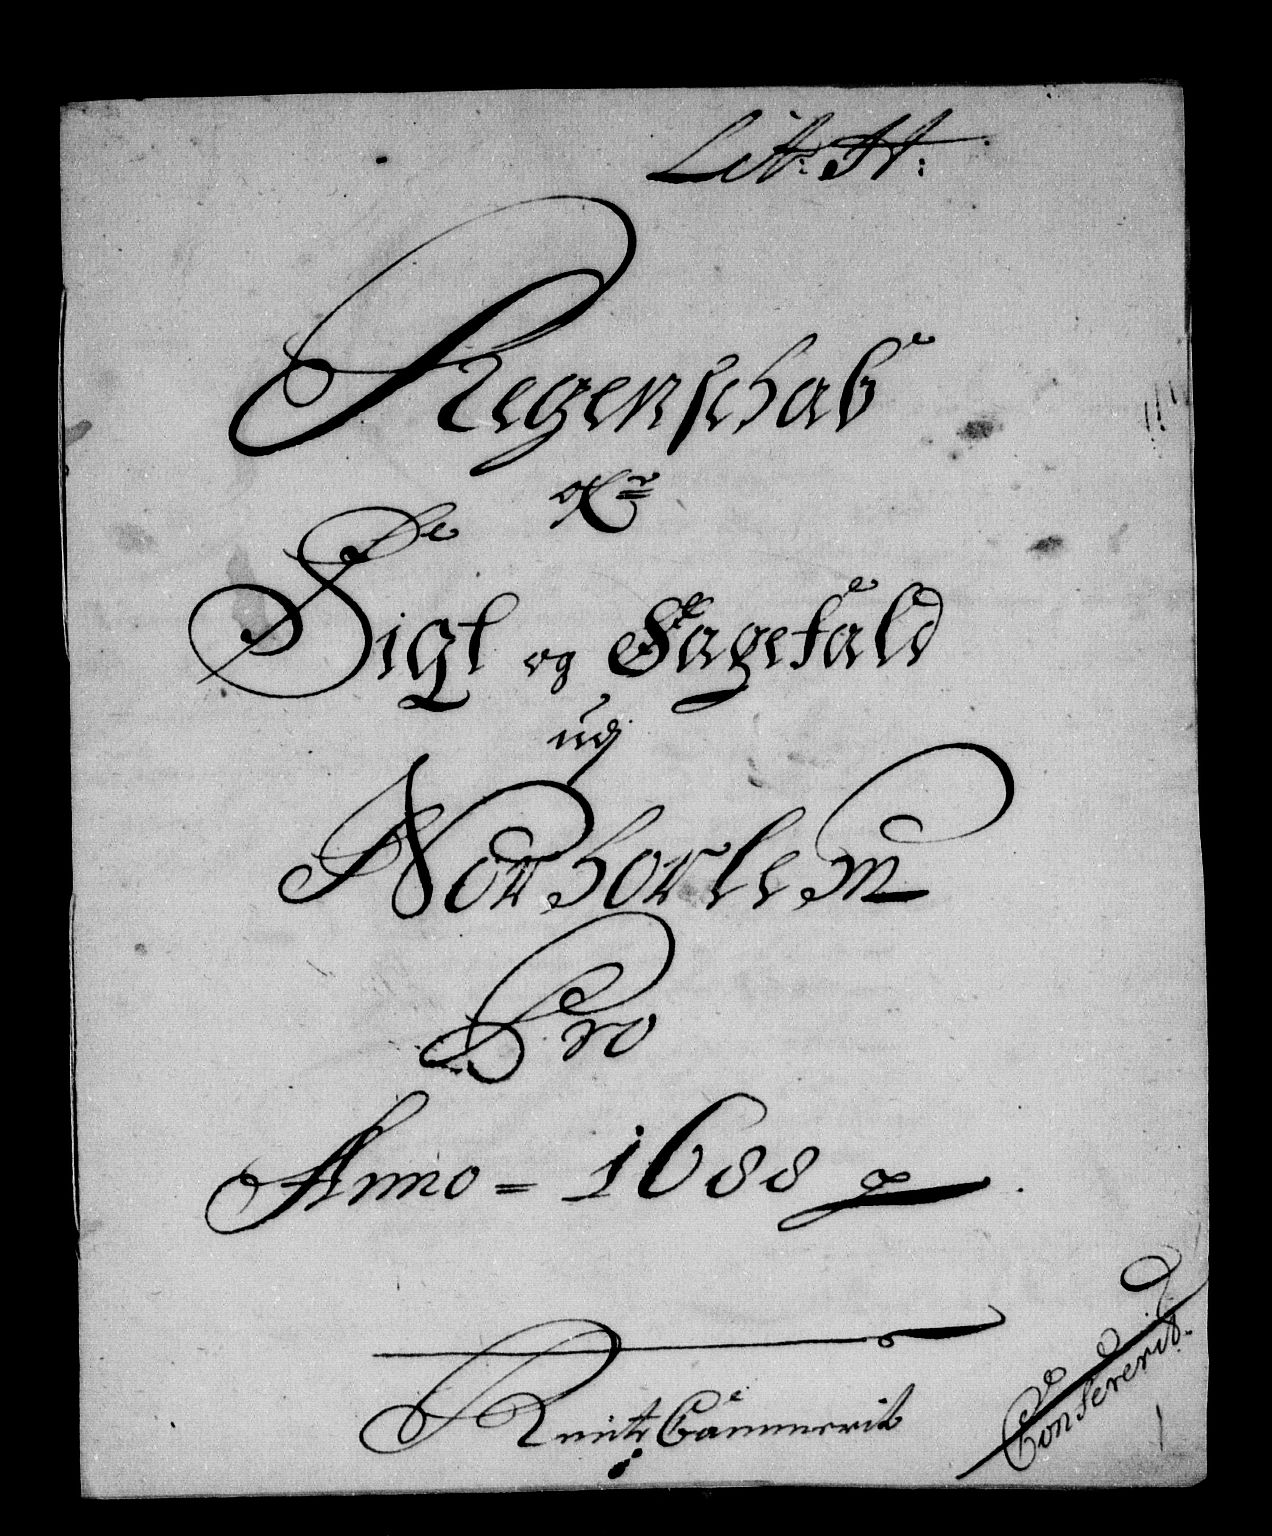 Litr: H:
Regenschab
ofr
Sigt og Sagefald
udj
Norhorlem
Pro
Anno = 1688
Rente Cammerit
Confererit.